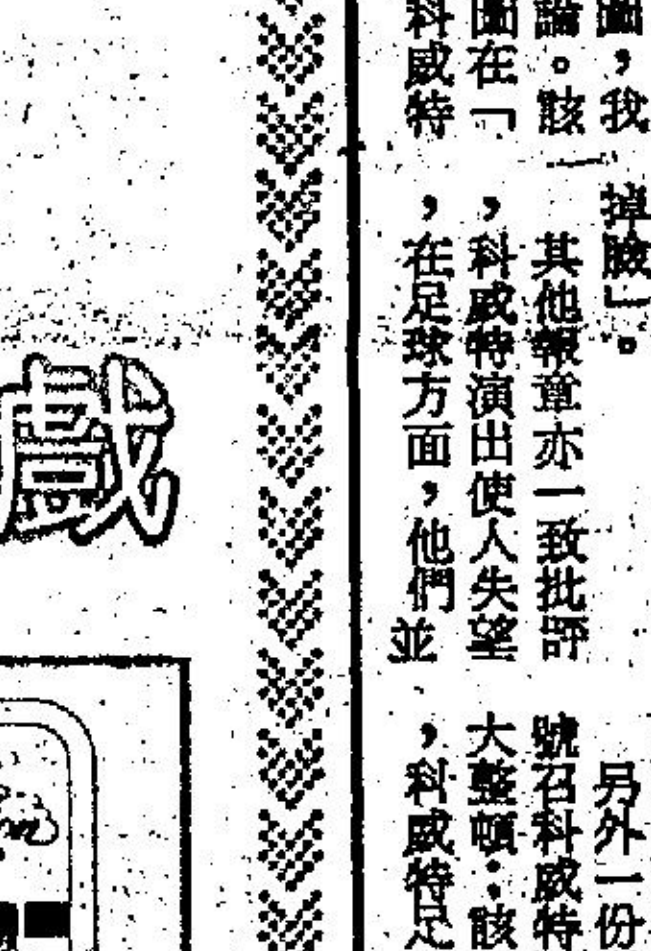 ,我
論。該
在「
科威特
掉臉」。
其他報章亦一致批評
,科威特演出使人失望
,在足球方面,他們並
另外一份
號召科威特
大整頓:該
,科威特足
戲